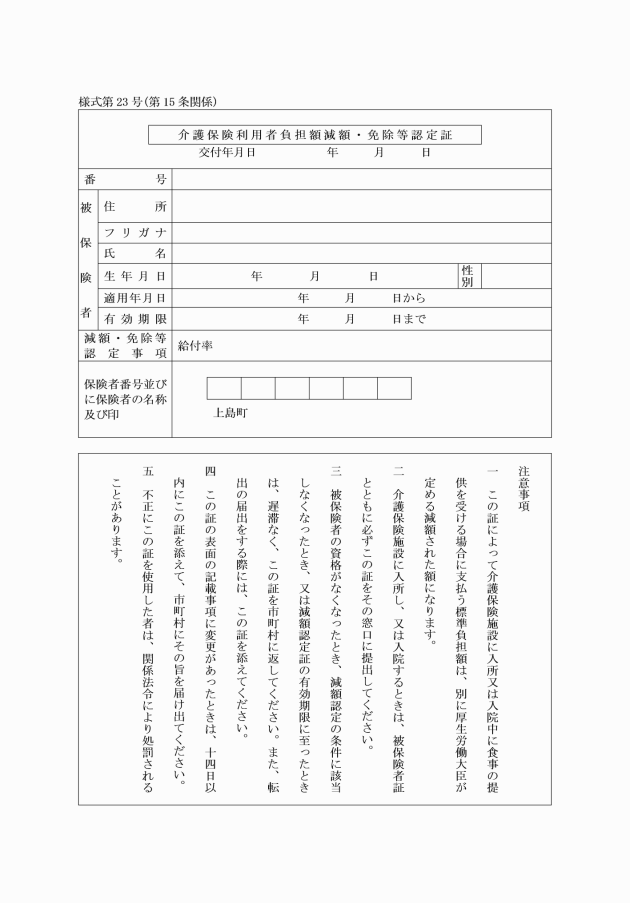 様式第23号(第15条関係)
介護保険利用者負担額減額・免除等認定証
交付年月日 年 月 日
番 号
被保険者
住 所
フリガナ
氏 名
生年月日 年 月 日 性別
適用年月日 年 月 日から
有効期限 年 月 日まで
減額・免除等
認定事項
給付率
保険者番号並び
に保険者の名称
及び印
上島町
注意事項
一 この証によって介護保険施設に入所又は入院中に食事の提
供を受ける場合に支払う標準負担額は、別に厚生労働大臣が
定める減額された額になります。
二 介護保険施設に入所し、又は入院するときは、被保険者証
とともに必ずこの証をその窓口に提出してください。
三 被保険者の資格がなくなったとき、減額認定の条件に該当
しなくなったとき、又は減額認定証の有効期限に至ったとき
は、遅滞なく、この証を市町村に返してください。また、転
出の届出をする際には、この証を添えてください。
四 この証の表面の記載事項に変更があったときは、十四日以
内にこの証を添えて、市町村にその旨を届け出てください。
五 不正にこの証を使用した者は、関係法令により処罰される
ことがあります。